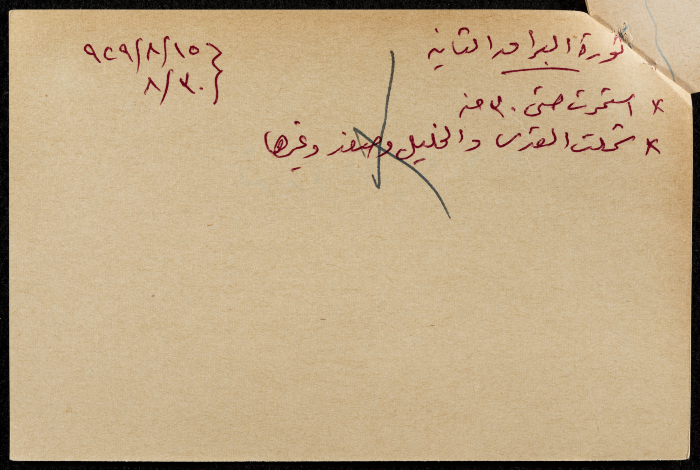 ثورة البراق الثانيه
٩٢٩/٨/١٥
٨/٣٠
× استمرت حتى ٣٠ منه
× شملت القدس والخليل وصفد وغيرها